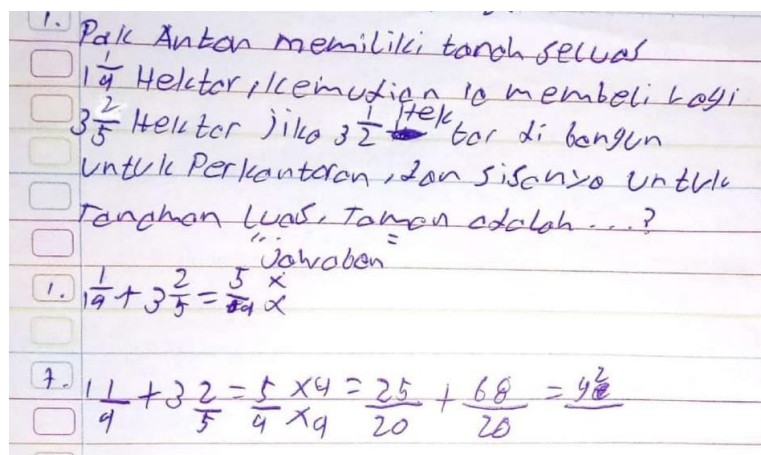 1. Pak Anton memiliki tanah seluas
1 1/4 Hektar, kemudian ia membeli lagi
3 2/5 Hektar jika 3 1/2 Hektar di bangun
untuk Perkantoran, dan sisanya untuk
Tanaman Luas, Taman adalah ...?
"Jawaban"
1. 1 1/4 + 3 2/5 = 5/4 x x
7. 1 1/4 + 3 2/5 = 5/4 x4 x4 = 25/20 + 68/20 = 92